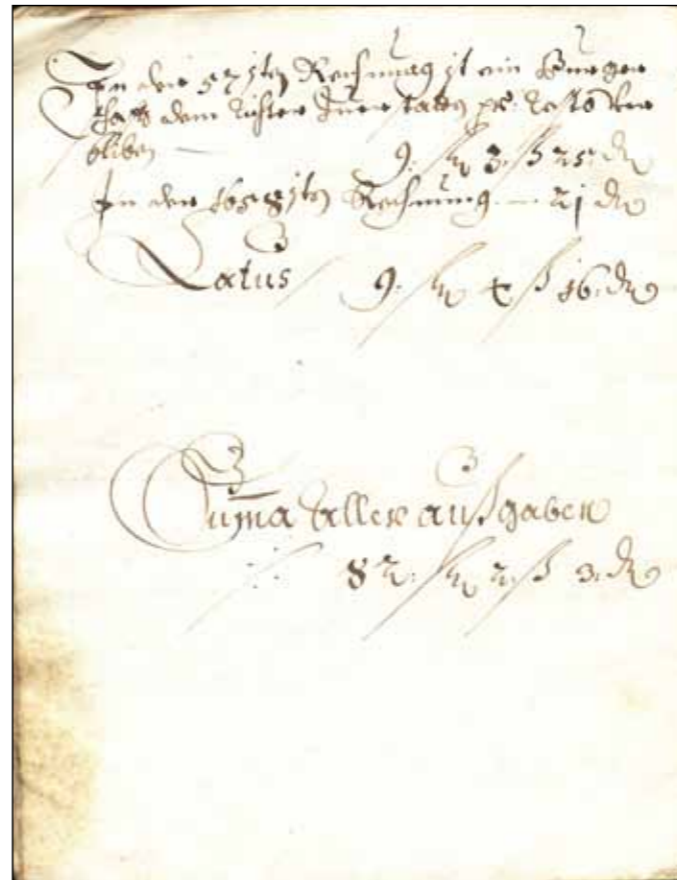 In der 57isten Rechnung ist ein Burger
schafft dem Richter Innerstatts per Resto ver
bliben — 9. fl 3. ß 25. dn
In der 1658isten Rechnung — 21 dn
Latus 9. fl 4 ß 16. dn
Suma Aller außgaben
82. fl 2. ß 3. dn